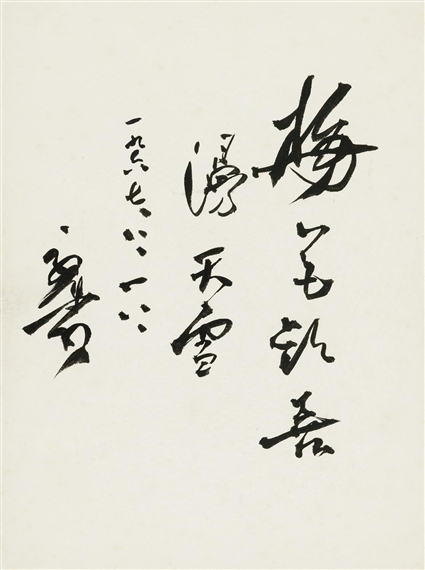 梅花欢喜
漫天雪
一九六七、八、一八